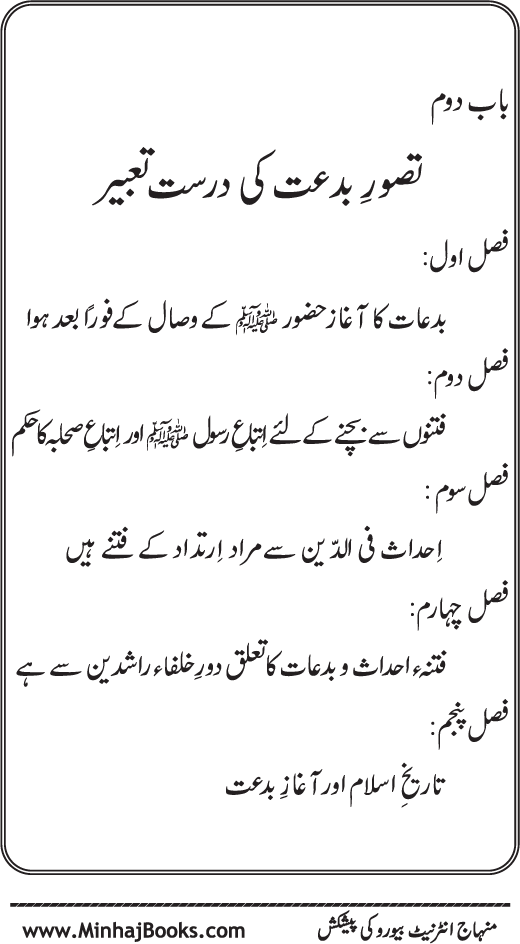 باب دوم
تصورِ بدعت کی درست تعبیر
فصل اول:
بدعات کا آغاز حضور ﷺ کے وصال کے فوراً بعد ہوا
فصل دوم:
فتنوں سے بچنے کے لئے اِتباعِ رسول ﷺ اور اِتباعِ صحابہ کا حکم
فصل سوم :
اِحداث فی الدّین سے مراد اِرتداد کے فتنے ہیں
فصل چہارم:
فتنہء احداث و بدعات کا تعلق دورِ خلفاء راشدین سے ہے
فصل پنجم:
تاریخِ اسلام اور آغازِ بدعت
منہاج انٹرنیٹ بیورو کی پیشکش
www.MinhajBooks.com